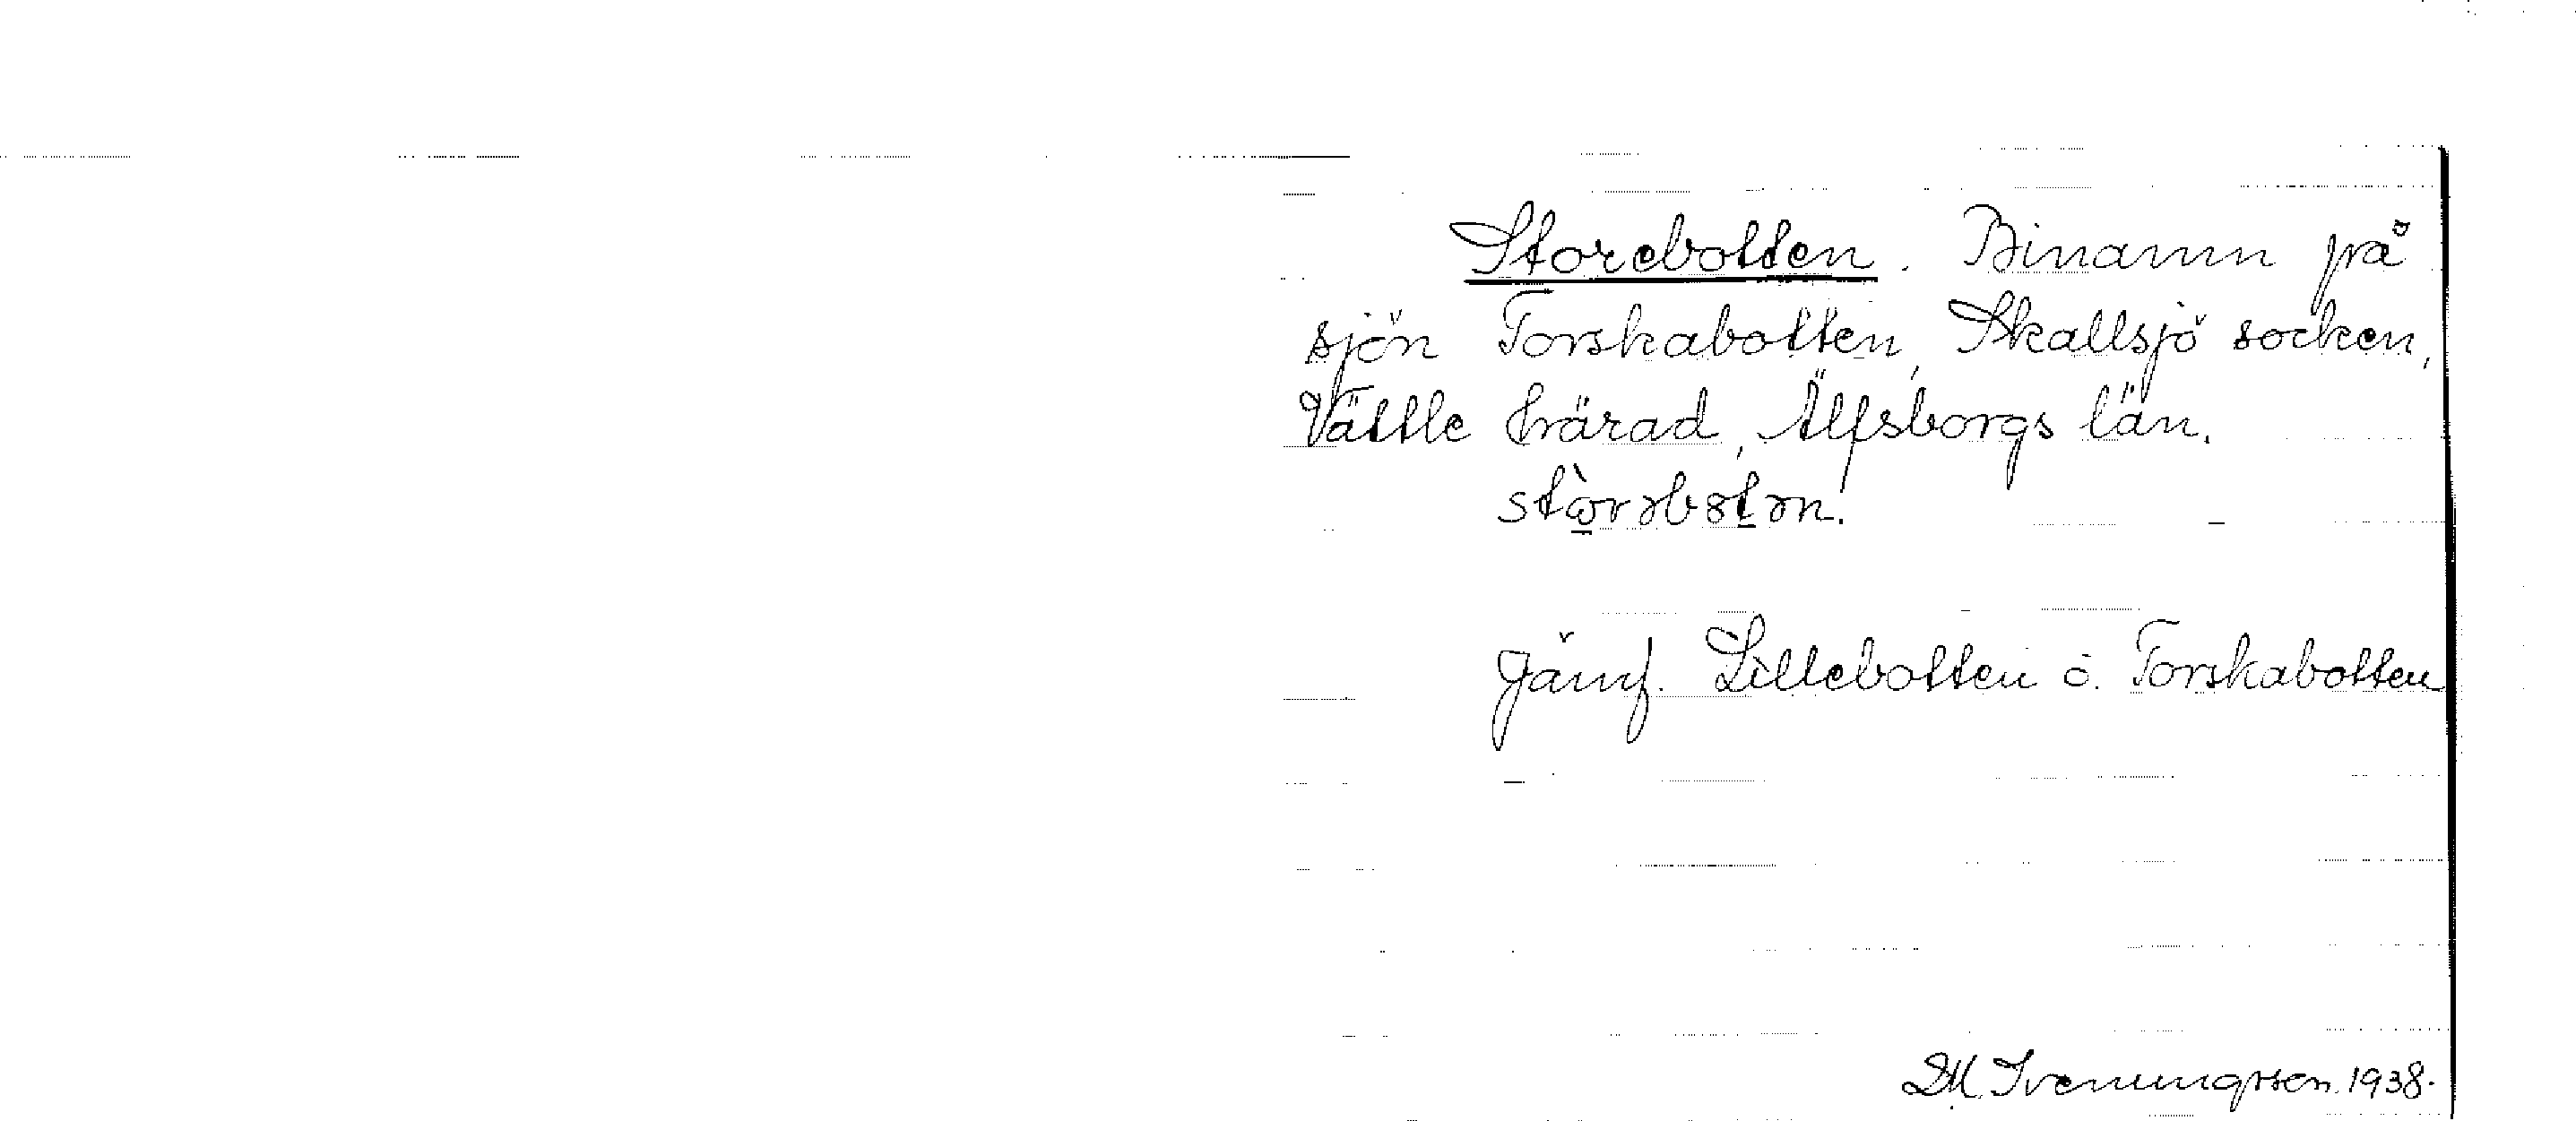 Storebotten. Binamn på
sjön Torskabotten, Skallsjö socken,
Vättle härad, Älfsborgs län.
Jämf. Lillebotten o. Torskabotten
D.M. Svenungsson. 1938.